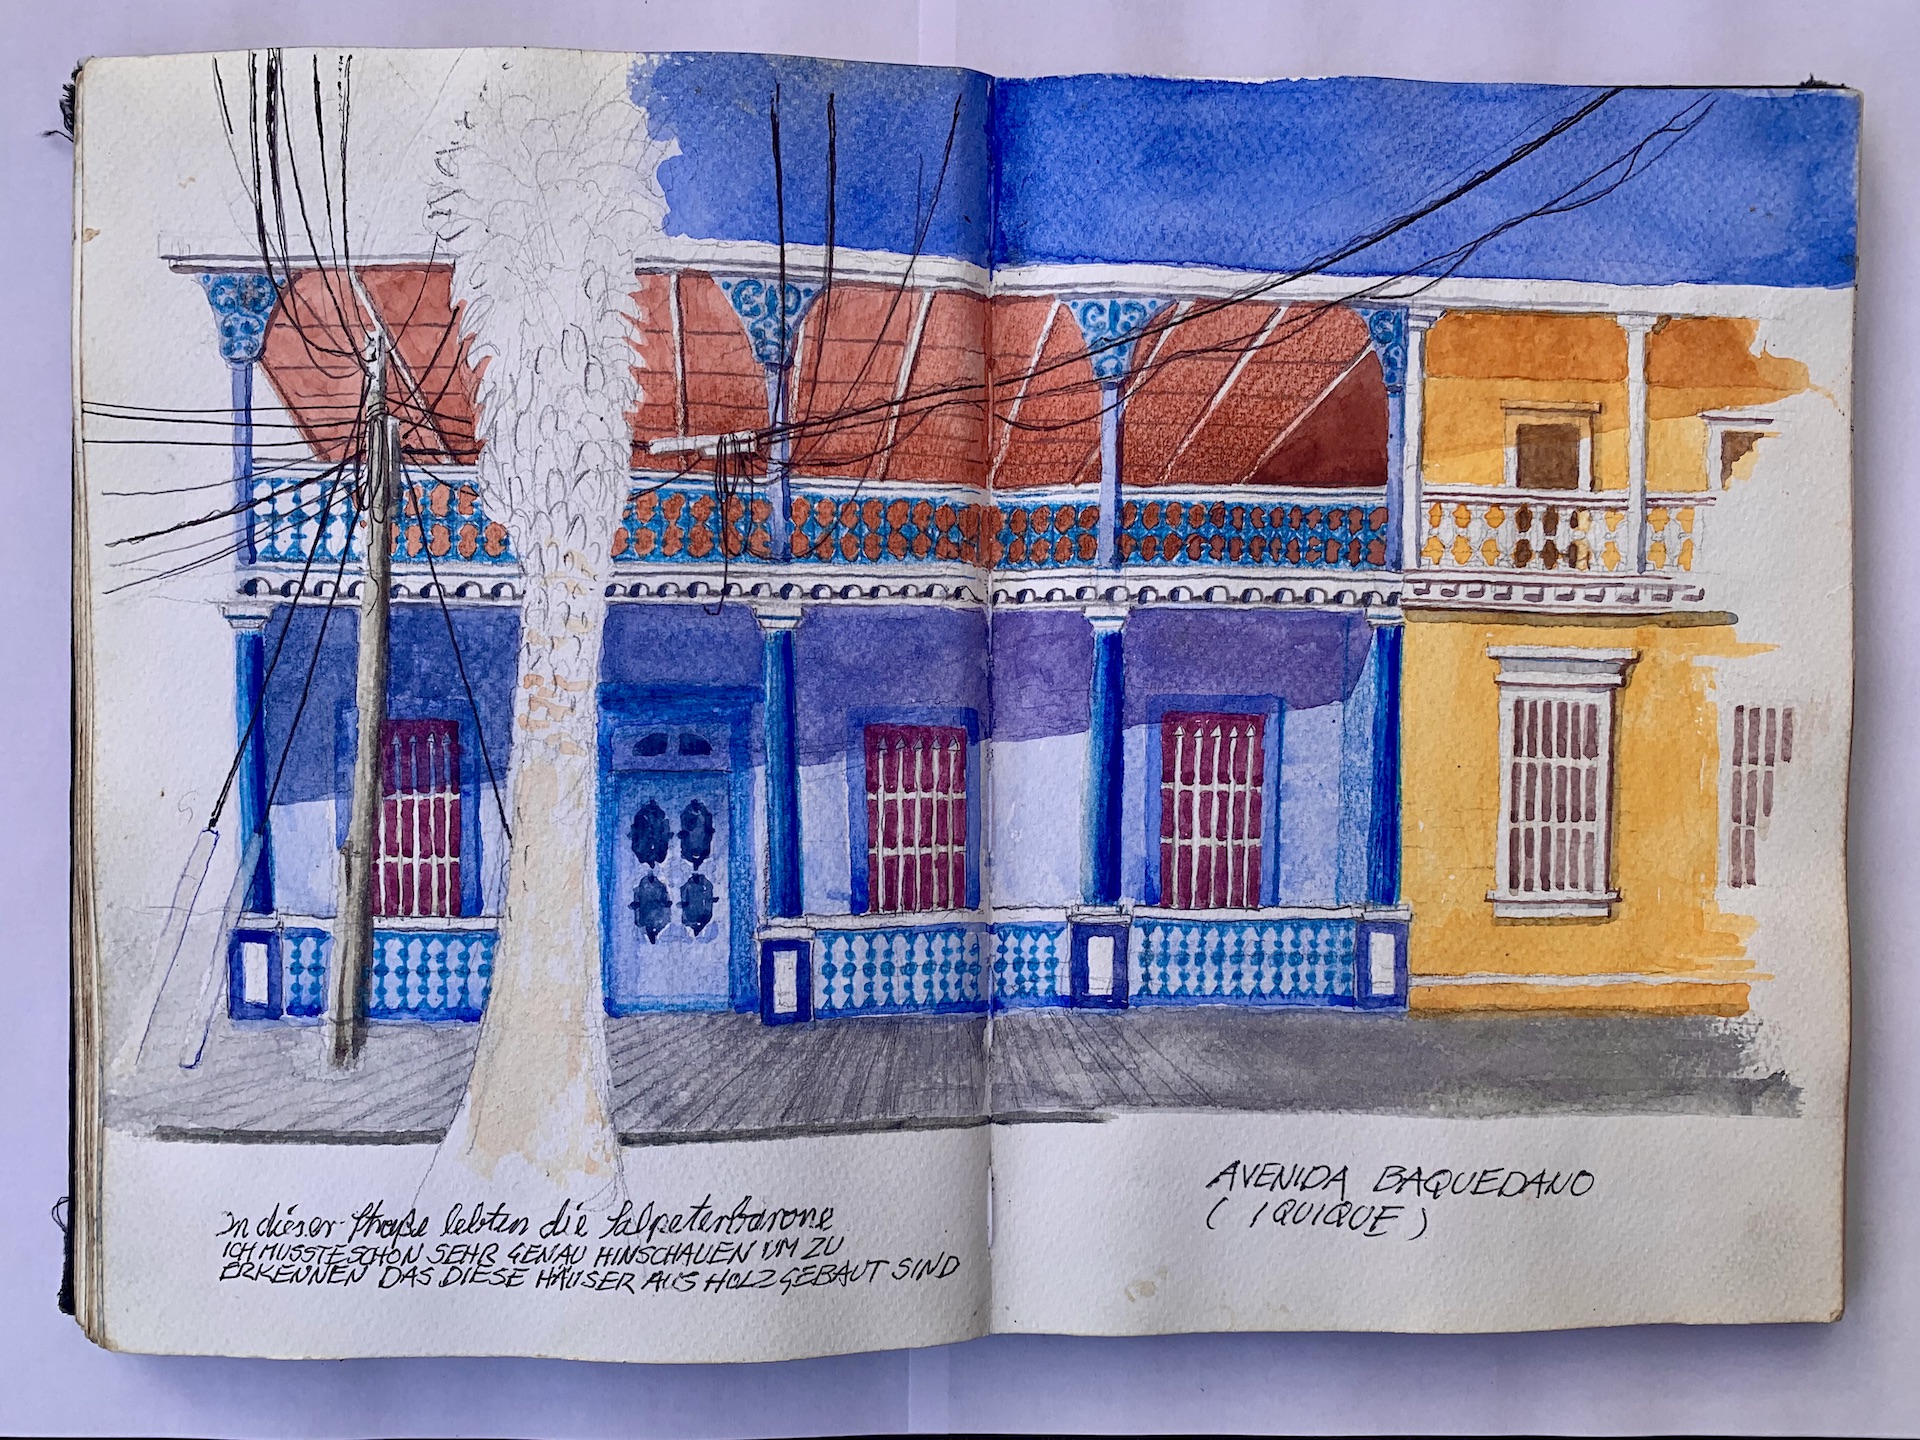 In dieser Straße lebten die Salpeterbarone
ICH MUSSTE SCHON SEHR GENAU HINSCHAUEN UM ZU
ERKENNEN DAS DIESE HÄUSER AUS HOLZ GEBAUT SIND
AVENIDA BAQUEDANO
( IQUIQUE )